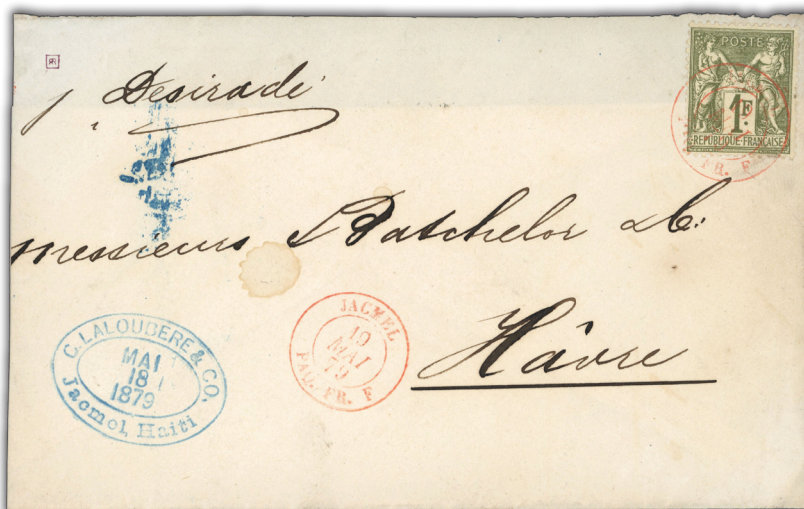 POSTE
1F
REPUBLIQUE FRANÇAISE
FR. F
Desirade
Messieurs Batchelor &
Hâvre
C. LALOUBERE & CO.
MAI
18
1879
Jacmel, Haiti
JACMEL
19
MAI
79
PAQ. FR. F